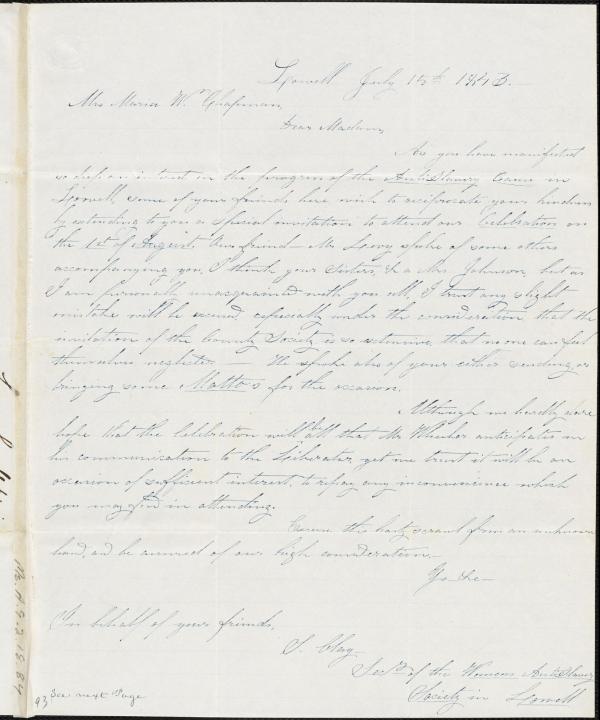 Lowell July 15th 1843.
Mrs Maria W. Chapman,
Dear Madam,
As you have manifested
so deep an interest in the progress of the AntiSlavery Cause in
Lowell, some of your friends here wish to reciprocate your kindness
by extending to you a special invitation to attend our Celebration on
the 1st of August. Our friend Mr spoke of some others
accompanying you, I think your Sisters, & a Mrs Johnson, but as
I am personally unacquainted with you all, I trust any slight
mistake will be excused especially under the consideration that the
invitation of the County Society is so extensive, that no one can feel
themselves neglected. He spoke also of your either sending or
bringing some Motto's for the occasion.
Although we hardly dare
hope that the Celebration will be all that Mr anticipates in
his communication to the Liberator yet we trust it will be an
occasion of sufficient interest, to repay any inconvenience which
you may find in attending.
Excuse the hasty scrawl from an unknown
hand, and be assured of our high consideration.
Yrs &c
In behalf of your friends,
S. Clay
Secy of the Womens AntiSlavery
Society in Lowell
93 See next Page
Ms. A. 9. 2. 18. 84